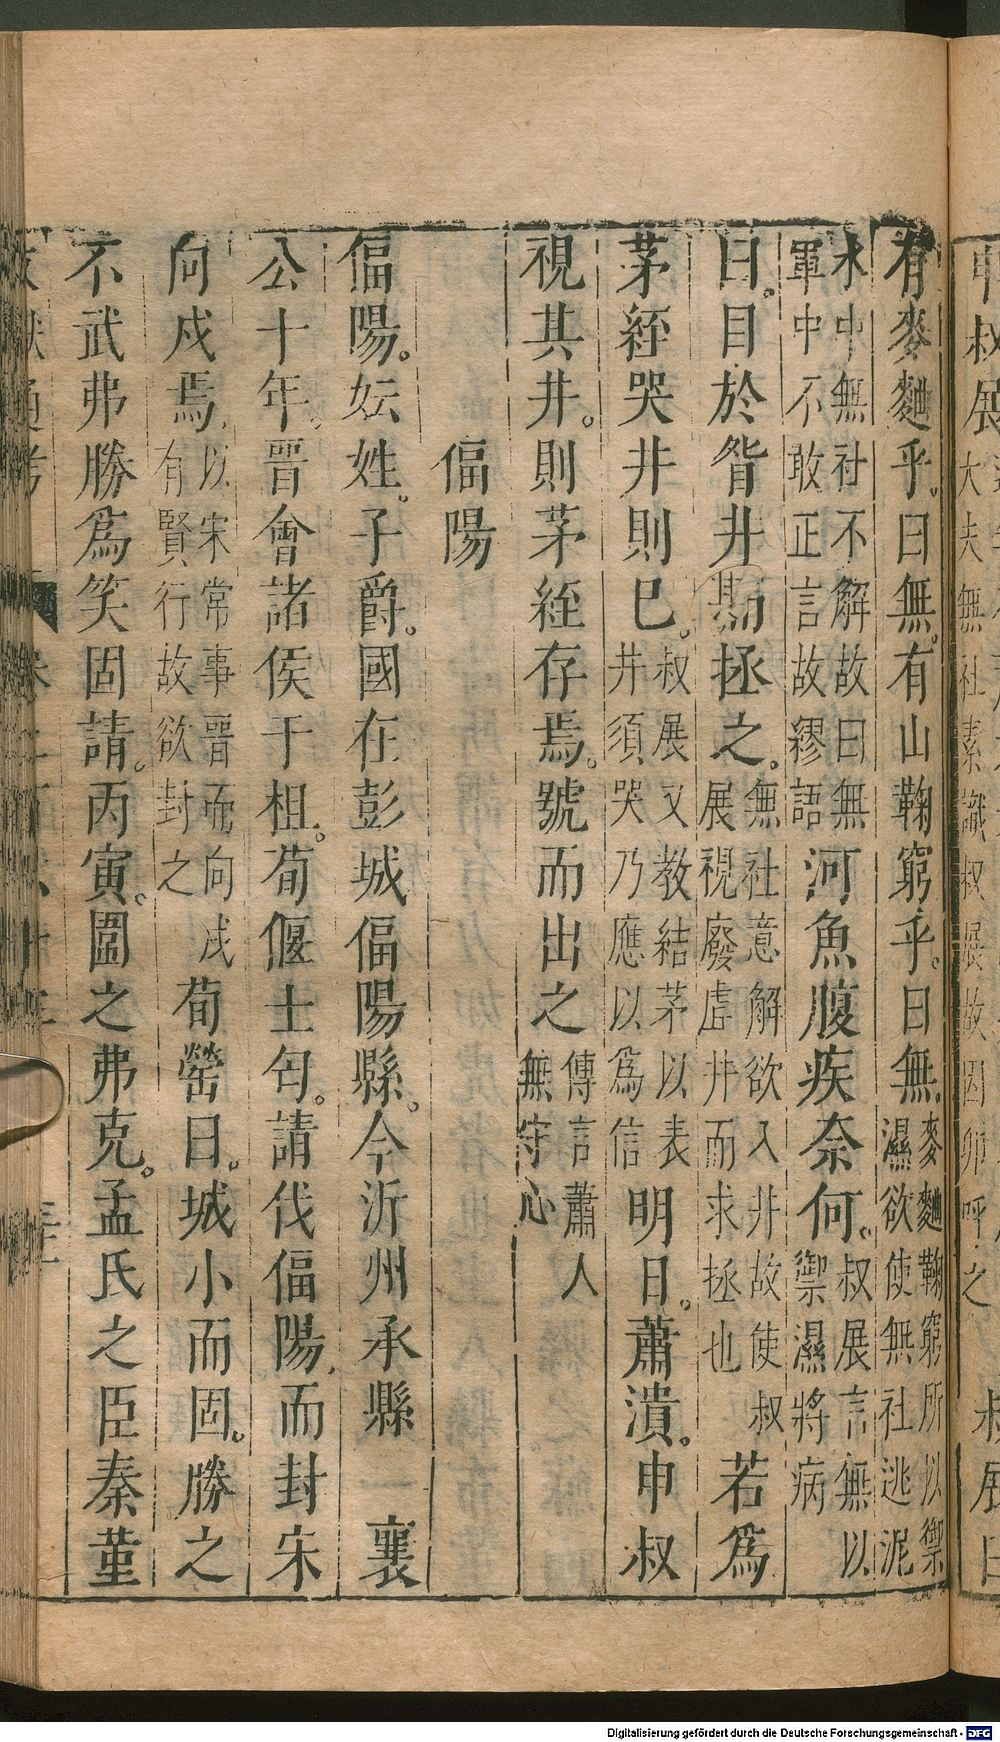 有麥麴乎。曰無。有山鞠窮乎。曰無。麥麴鞠窮所以禦濕欲使無社逃泥
水中無社不解故曰無軍中不敢正言故繆語河魚腹疾奈何。叔展言無以禦濕將病
曰。目於眢井而拯之。無社意解欲入井故使叔展視廢虛井而求拯也若爲
茅絰哭井則已。叔展又教結茅以表井須哭乃應以爲信明日。蕭潰。申叔
視其井。則茅絰存焉。號而出之傳言蕭人無守心
偪陽
偪陽。妘姓。子爵。國在彭城偪陽縣。今沂州承縣 襄
公十年。晉會諸侯于柤。荀偃士匄。請伐偪陽而封宋
向戌焉以宋常事晉而向戌有賢行故欲封之荀罃曰。城小而固。勝之
不武弗勝爲笑固請。丙寅。圍之弗克。孟氏之臣秦菫
Digitalisierung gefördert durch die Deutsche Forschungsgemeinschaft - DFG